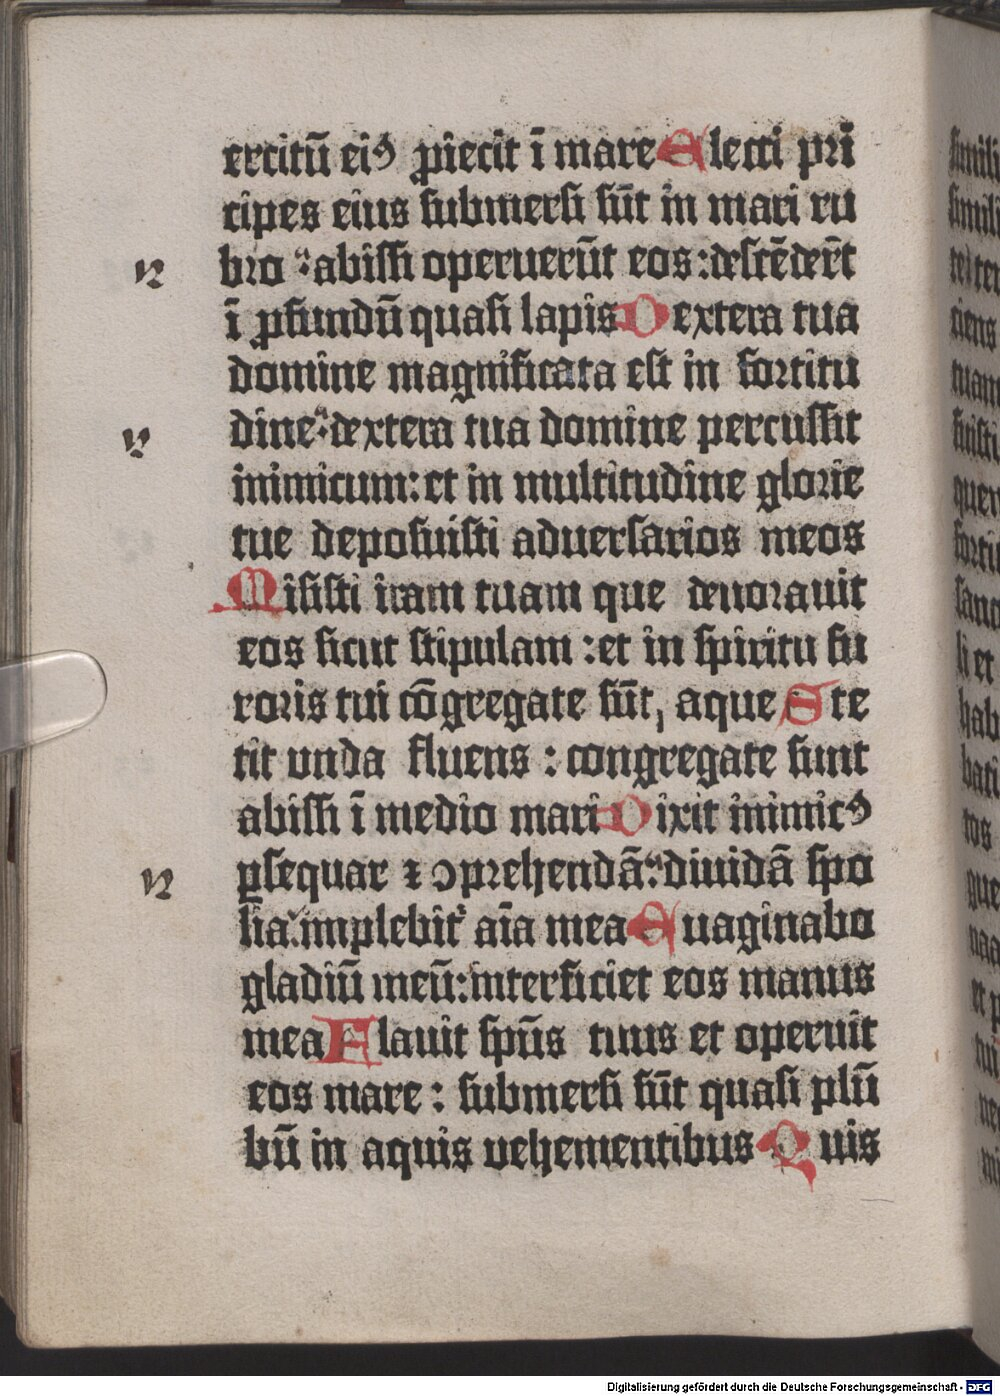 ercitū ei⁹ ꝓiecit ī mare Electi pri
cipes eius submersi sūt in mari ru
bro : abissi operuerūt eos : descēderūt
ī ꝓfundū quasi lapis Dextera tua
domine magnificata est in fortitu
dine : dextera tua domine percussit
inimicum : et in multitudine glorie
tue deposuisti aduersarios meos
Misisti iram tuam que deuorauit
eos sicut stipulam : et in spiritu fu
roris tui cōgregate sūt, aque Ste
tit vnda fluens : congregate sunt
abissi ī medio mari Dixit inimic⁹
ꝑsequar ⁊ ↄprehendā : diuidā spo
lia : implebit᷑ aīa mea Euaginabo
gladiū meū : interficiet eos manus
mea Flauit spūs tuus et operuit
eos mare : submersi sūt quasi plū
bū in aquis vehementibus Quis
Digitalisierung gefördert durch die Deutsche Forschungsgemeinschaft - DFG